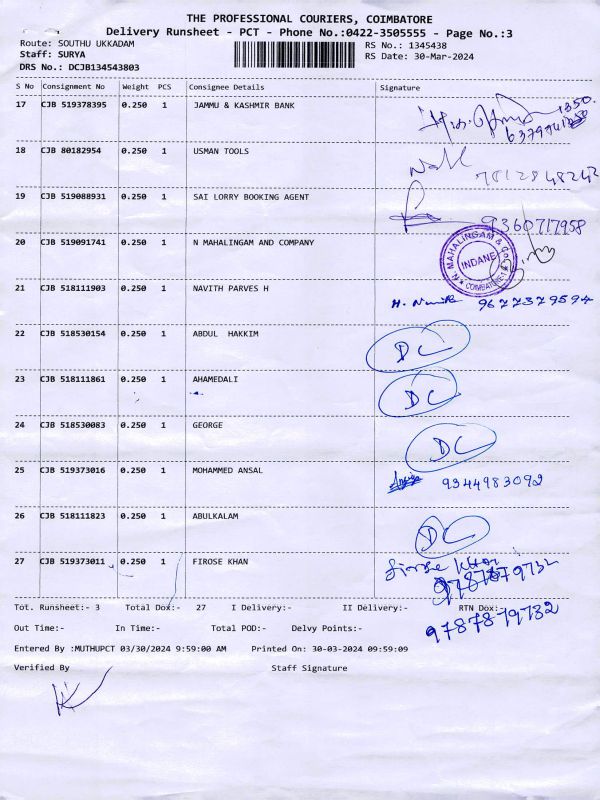 THE PROFESSIONAL COURIERS, COIMBATORE
Delivery Runsheet - PCT - Phone No.:0422-3505555 - Page No.:3
Route: SOUTHU UKKADAM RS No.: 1345438
Staff: SURYA RS Date: 30-Mar-2024
DRS No.: DCJB134543803
S No Consignment No Weight PCS Consignee Details Signature
17 CJB 519378395 0.250 1 JAMMU & KASHMIR BANK
18 CJB 80182954 0.250 1 USMAN TOOLS
7812848242
19 CJB 519088931 0.250 1 SAI LORRY BOOKING AGENT
9360717958
20 CJB 519091741 0.250 1 N MAHALINGAM AND COMPANY
N. MAHALINGAM & Co. INDANE COIMBATORE-1
21 CJB 518111903 0.250 1 NAVITH PARVES H
9677379594
22 CJB 518530154 0.250 1 ABDUL HAKKIM DC
23 CJB 518111861 0.250 1 AHAMEDALI DC
24 CJB 518530083 0.250 1 GEORGE DC
25 CJB 519373016 0.250 1 MOHAMMED ANSAL 9344983092
26 CJB 518111823 0.250 1 ABULKALAM DC
27 CJB 519373011 0.250 1 FIROSE KHAN firose khan
Tot. Runsheet:- 3 Total Dox:- 27 I Delivery:- II Delivery:- RTN Dox:-
9787879732
Out Time:- In Time:- Total POD:- Delvy Points:-
Entered By :MUTHUPCT 03/30/2024 9:59:00 AM Printed On: 30-03-2024 09:59:09
Verified By Staff Signature